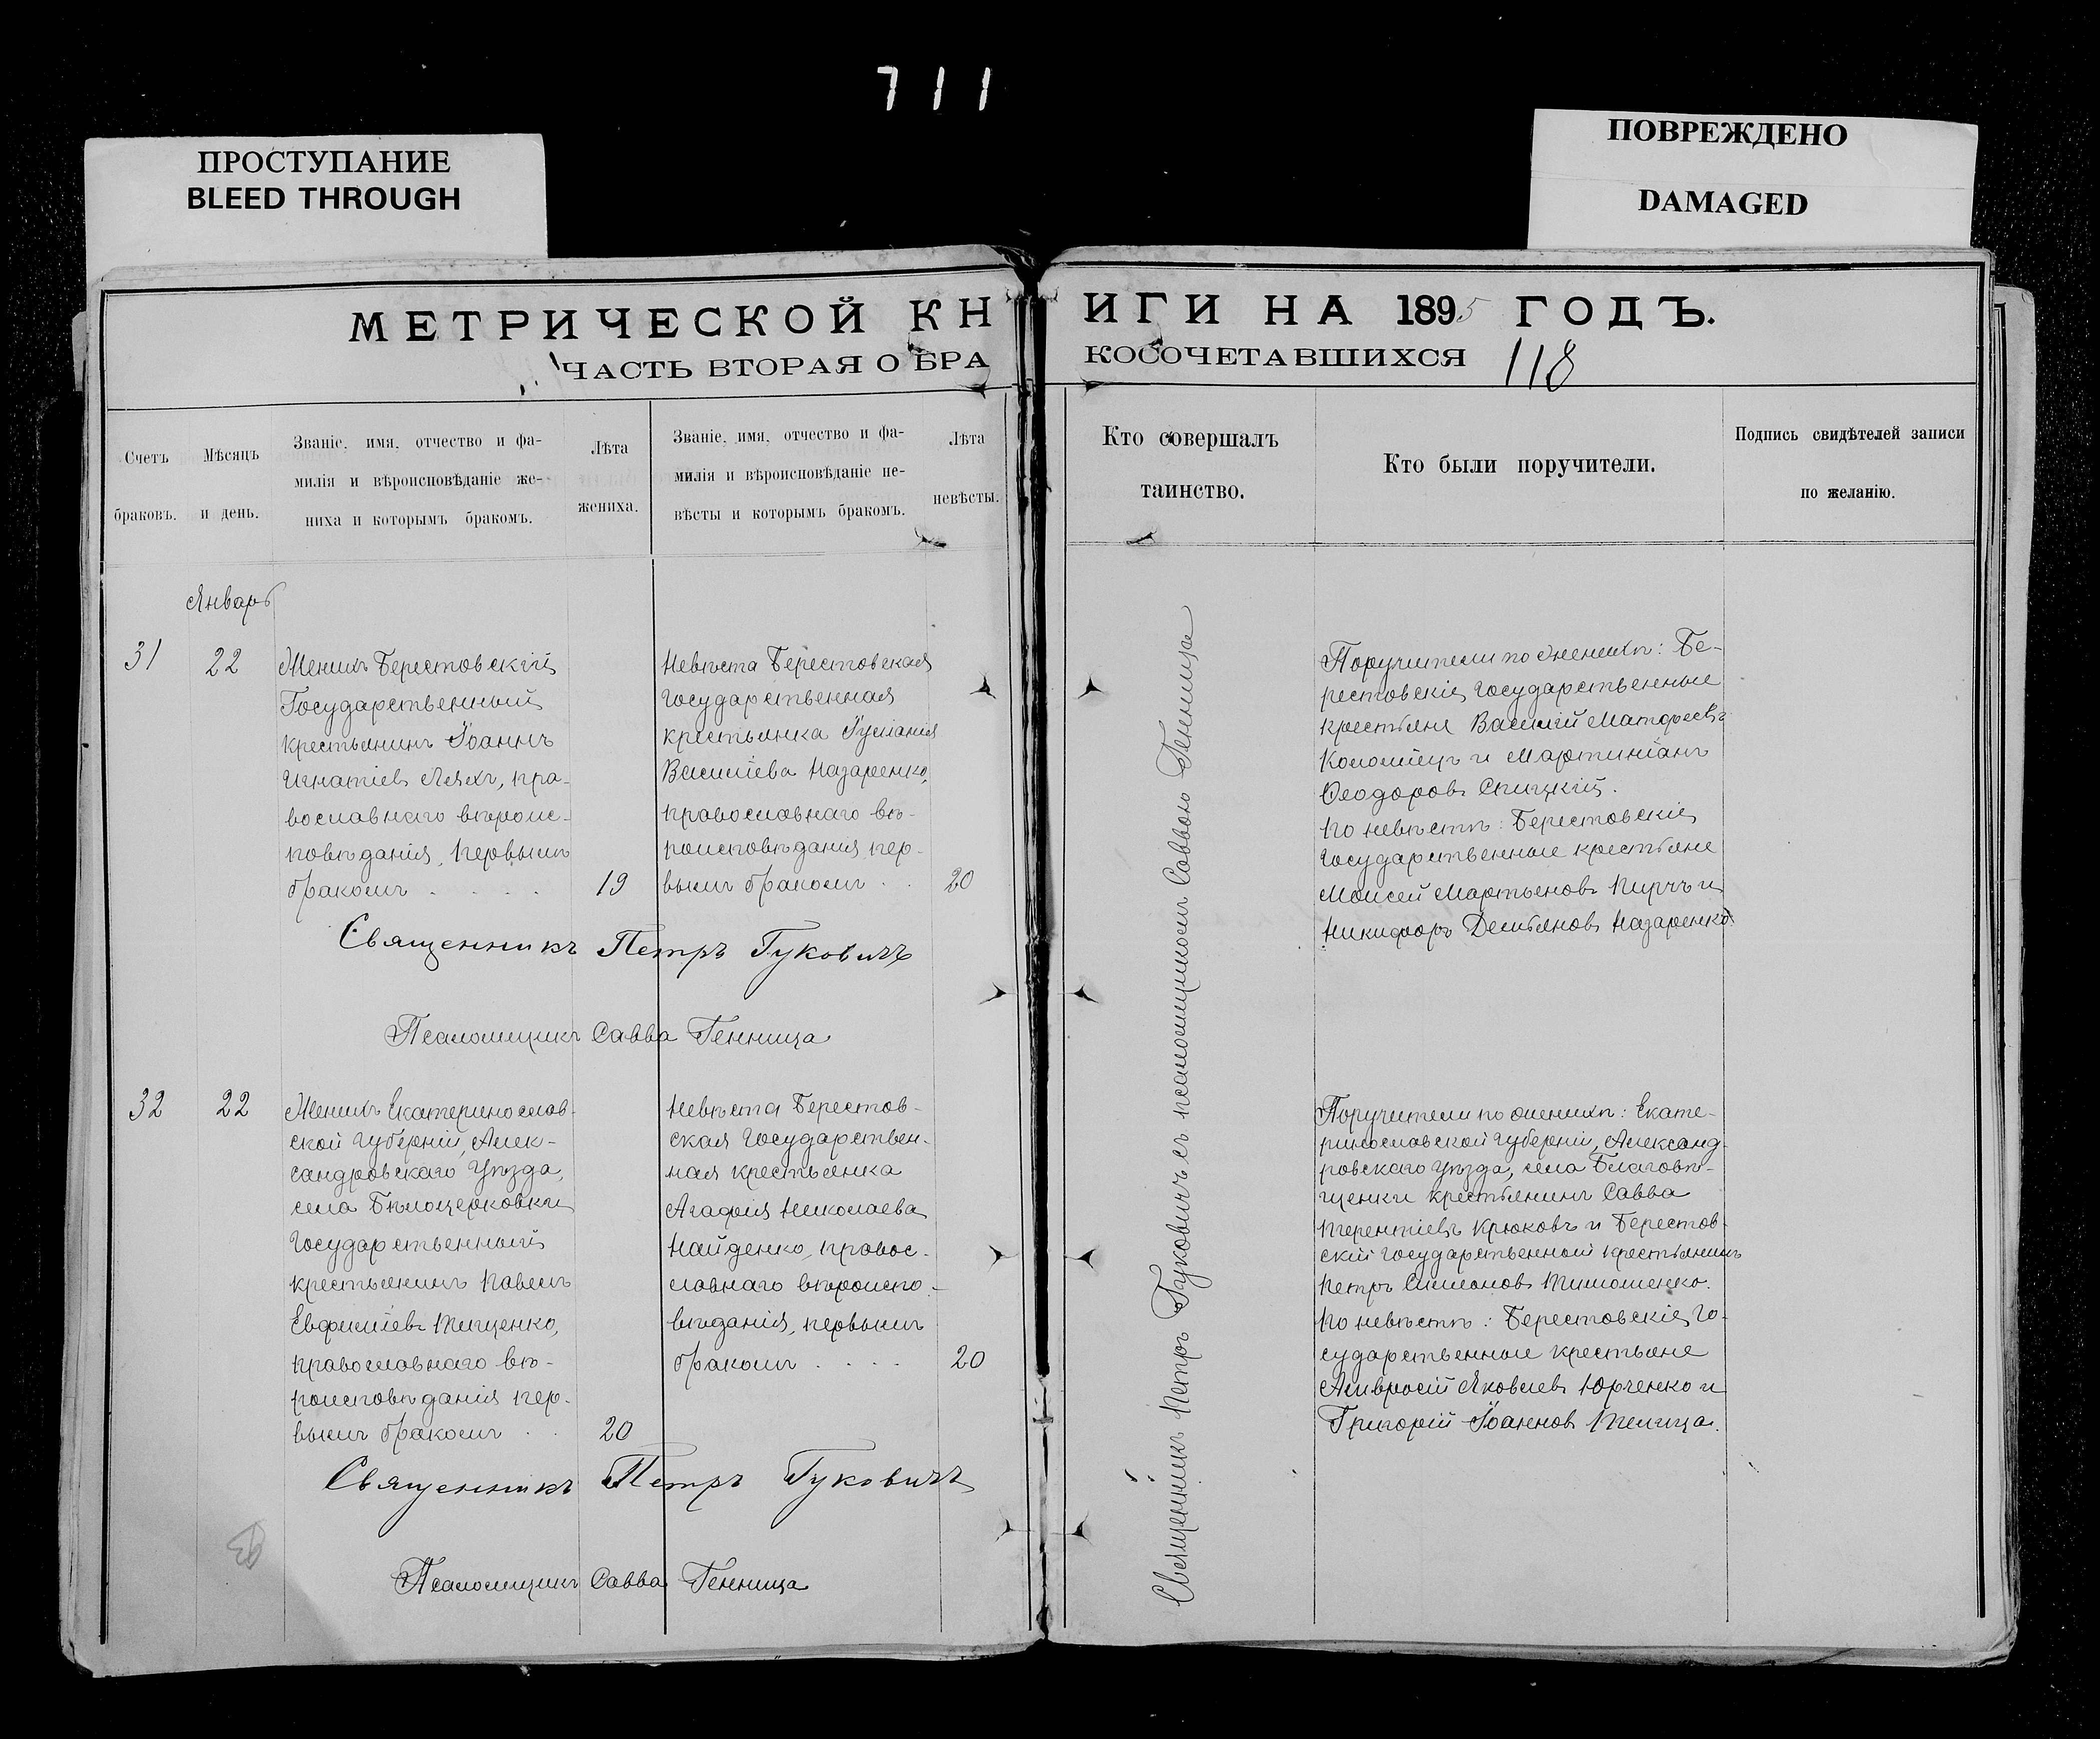 711
ПРОСТУПАНИЕ
BLEED THROUGH
ПОВРЕЖДЕНО
DAMAGED
МЕТРИЧЕСКОЙ КНИГИ НА 1895 ГОДЪ.
ЧАСТЬ ВТОРАЯ О БРАКОСОЧЕТАВШИХСЯ 118
Счетъ
браковъ.
Мѣсяцъ
и день.
Званіе, имя, отчество и фа-
милія и вѣроисповѣданіе же-
ниха и которымъ бракомъ.
Лѣта
жениха.
Званіе, имя, отчество и фа-
милія и вѣроисповѣданіе не-
вѣсты и которымъ бракомъ.
Лѣта
невѣсты.
Кто совершалъ
таинство.
Кто были поручители.
Подпись свидѣтелей записи
по желанію.
Январь
31
22
Женихъ Берестовскій
Государственный
крестьянинъ Іоаннъ
Игнатіевъ Ляхъ, пра-
вославнаго вѣроис-
повѣданія, первымъ
бракомъ . . . .
19
Невѣста Берестовская
государственная
крестьянка Іуліанія
Василіева Назаренко,
православнаго вѣ-
роисповѣданія, пер-
вымъ бракомъ . .
20
Поручители по женихѣ: Бе-
рестовскіе государственные
крестьяне Василій Матфеевъ
Коломіецъ и Мартиніанъ
Ѳеодоровъ Спицкій.
По невѣстѣ: Берестовскіе
государственные крестьяне
Моисей Мартьеновъ Пирчъ и
Никифоръ Демьяновъ Назаренко
Священникъ Петръ Гуковичъ
Псаломщикъ Савва Генница
32
22
Женихъ Екатеринослав-
ской губерніи, Алек-
сандровскаго уѣзда,
села Бѣлоцерковки
Государственный
крестьянинъ Павелъ
Евфиміевъ Тищенко,
православнаго вѣ-
роисповѣданія пер-
вымъ бракомъ . .
20
Невѣста Берестов-
ская Государствен-
ная крестьянка
Агафія Николаева
Найденко, правос-
лавнаго вѣроиспо-
вѣданія, первымъ
бракомъ . . . .
20
Поручители по женихѣ: Екате-
ринославской губерніи, Александ-
ровскаго уѣзда, села Благовѣ-
щенки крестьянинъ Савва
Терентіевъ Крюковъ и Берестов-
скій государственный крестьянинъ
Петръ Симеоновъ Тимошенко.
По невѣстѣ: Берестовскіе го-
сударственные крестьяне
Амвросій Яковлевъ Юрченко и
Григорій Іоанновъ Телица.
Священникъ Петръ Гуковичъ
Псаломщикъ Савва Генница
Священникъ Петръ Гуковичъ съ псаломщикомъ Саввою Генница
93